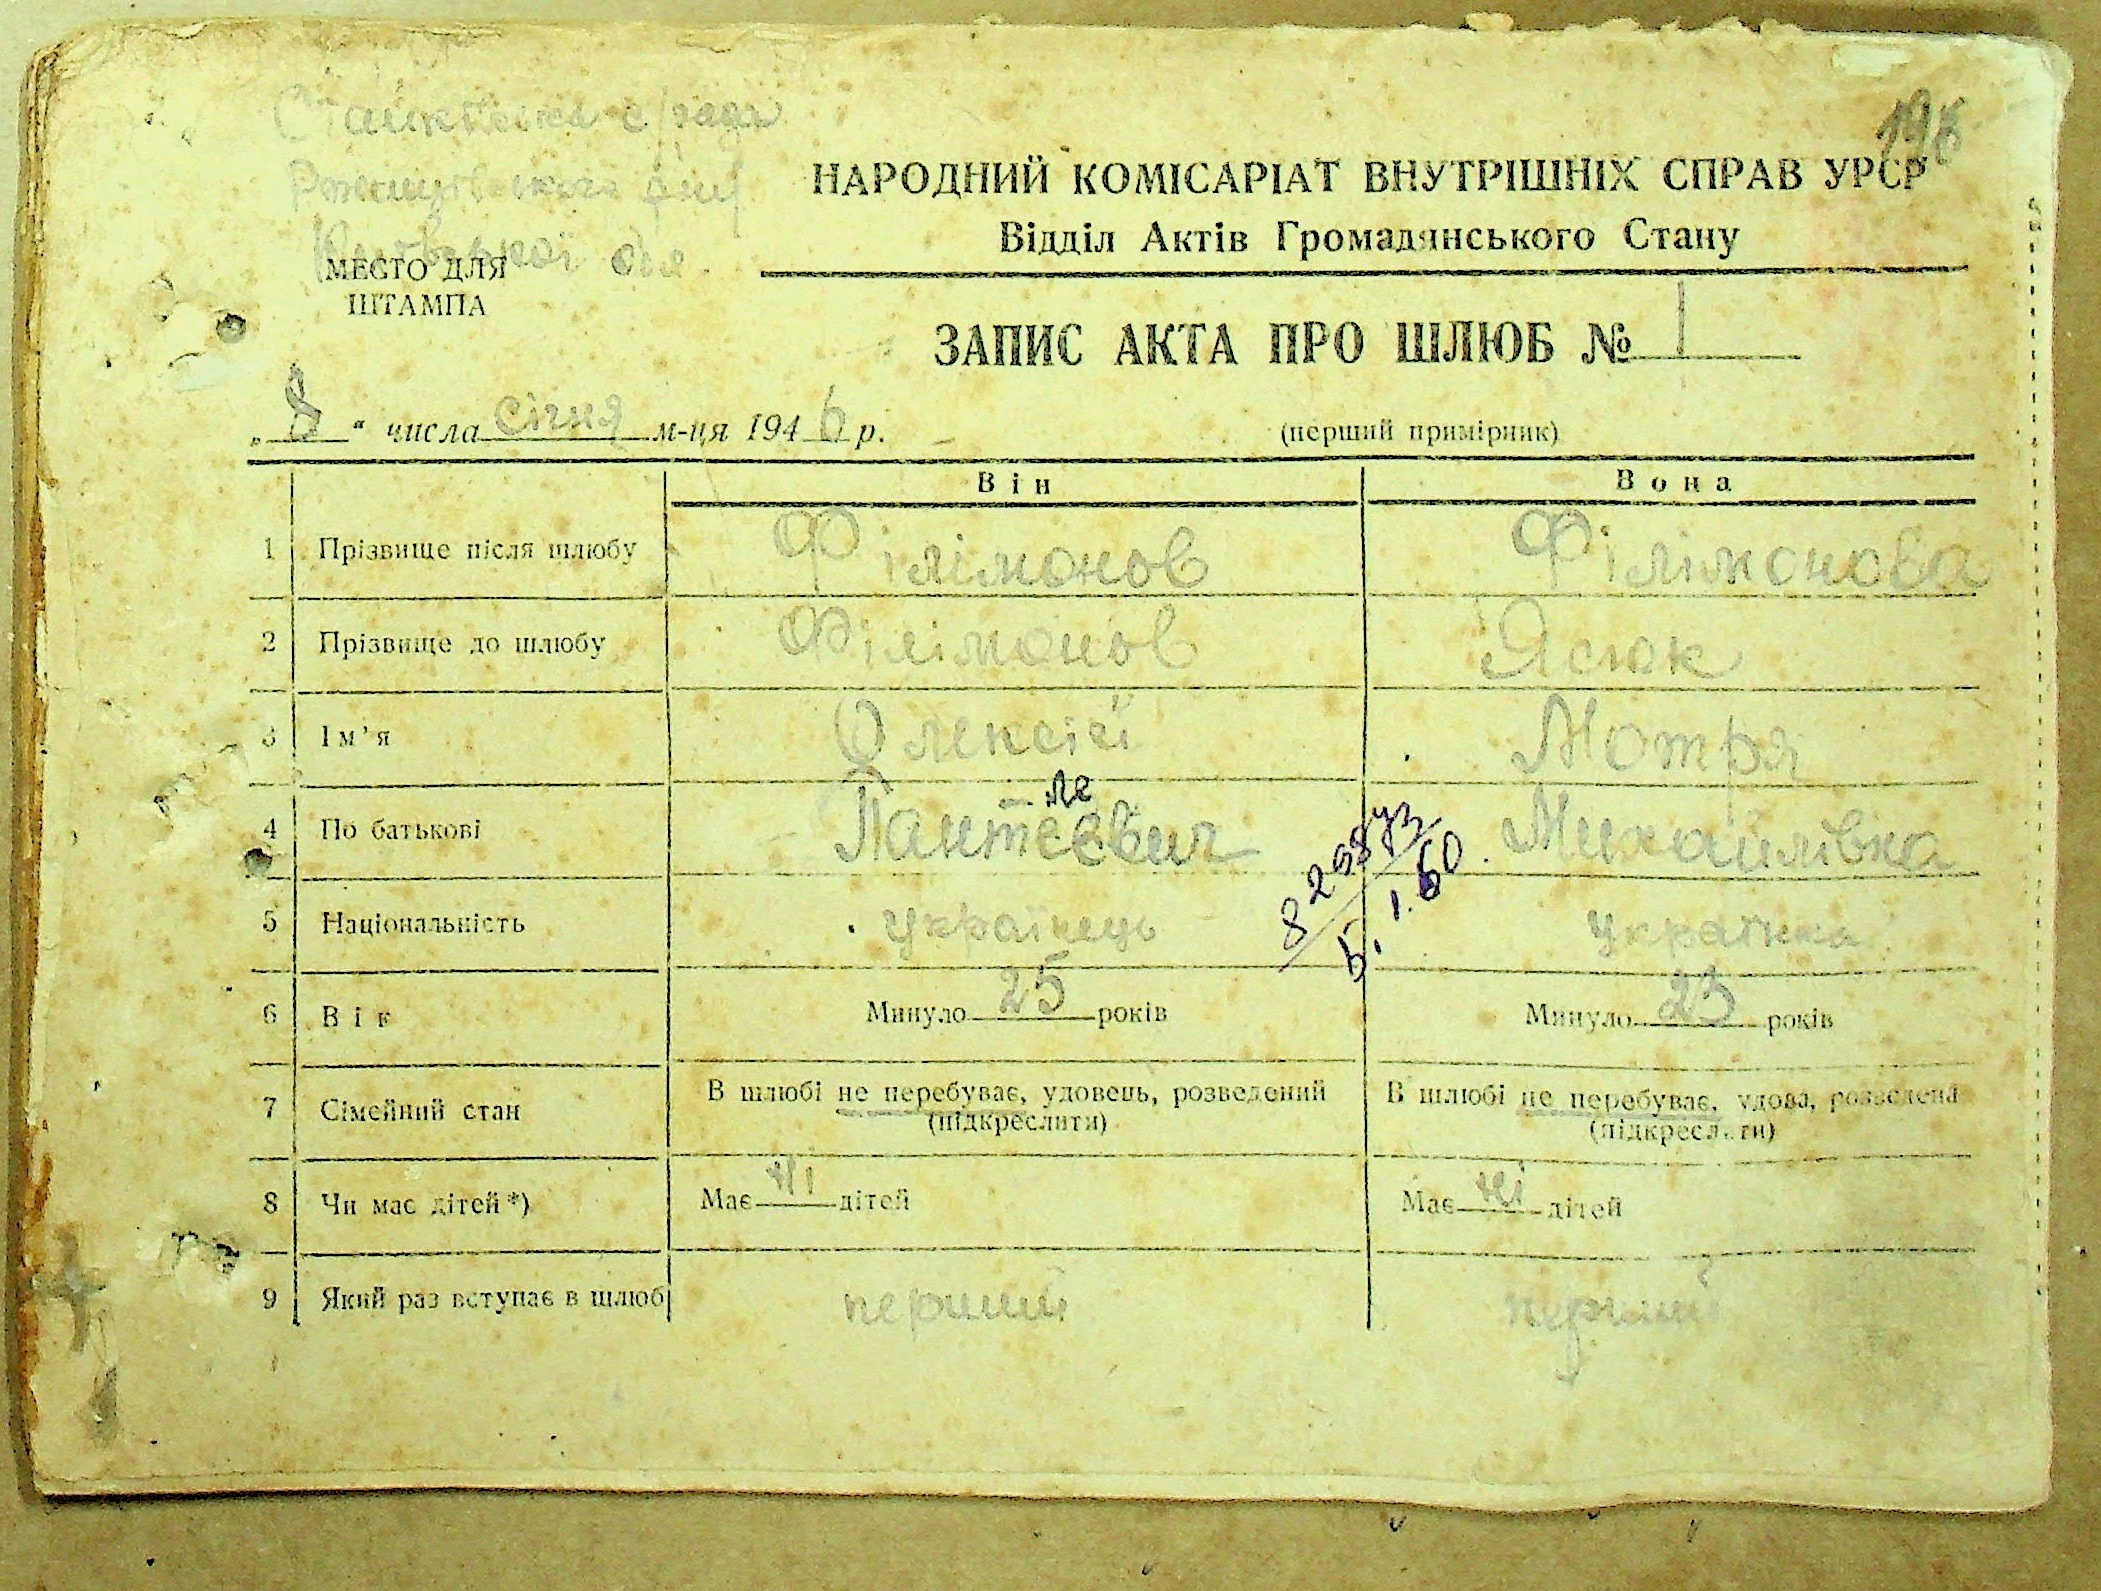 с/рада
обл.
196
НАРОДНИЙ КОМІСАРІАТ ВНУТРІШНІХ СПРАВ УРСР
Відділ Актів Громадянського Стану
МЕСТО ДЛЯ
ШТАМПА
ЗАПИС АКТА ПРО ШЛЮБ № 1
„8“ числа січня м-ця 1946 р.
(перший примірник)
Він Вона
1 Прізвище після шлюбу Філімонов Філімонова
2 Прізвище до шлюбу Філімонов Ясюк
3 Ім'я Олексій Мотря
ле
4 По батькові Пантеевич Михайлівна
5 Національність українець українка
6 Вік Минуло 25 років Минуло 23 років
7 Сімейний стан В шлюбі не перебуває, удовець, розведений В шлюбі не перебуває, удова, розведена
(підкреслити) (підкреслити)
8 Чи має дітей*) Має ні дітей Має ні дітей
9 Який раз вступає в шлюб перший перший